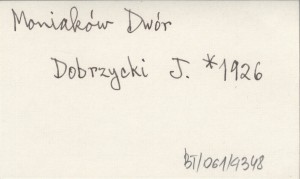 Moniaków Dwór
Dobrzycki J. *1926
BT/061/9348